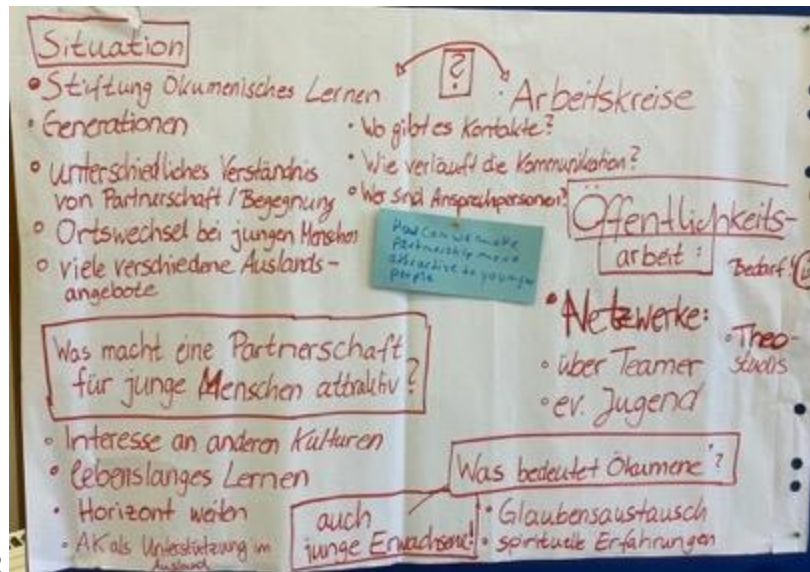 Situation
• Stiftung Ökumenisches Lernen
• Generationen
• unterschiedliches Verständnis
von Partnerschaft / Begegnung
• Ortswechsel bei jungen Menschen
• viele verschiedene Auslands-
angebote
?
• Arbeitskreise
• Wo gibt es Kontakte?
• Wie verläuft die Kommunikation?
• Wer sind Ansprechpersonen?
How can we make
Partnership more
attractive to younger
people
Öffentlichkeits-
arbeit:
Bedarf!
?
Was macht eine Partnerschaft
für junge Menschen attraktiv?
• Interesse an anderen Kulturen
• Lebenslanges Lernen
• Horizont weiten
• AK als Unterstützung im
Ausland
auch
junge Erwachsene!
• Netzwerke:
• über Teamer
• ev. Jugend
• Theo-
studis
Was bedeutet Ökumene?
• Glaubensaustausch
• spirituelle Erfahrungen